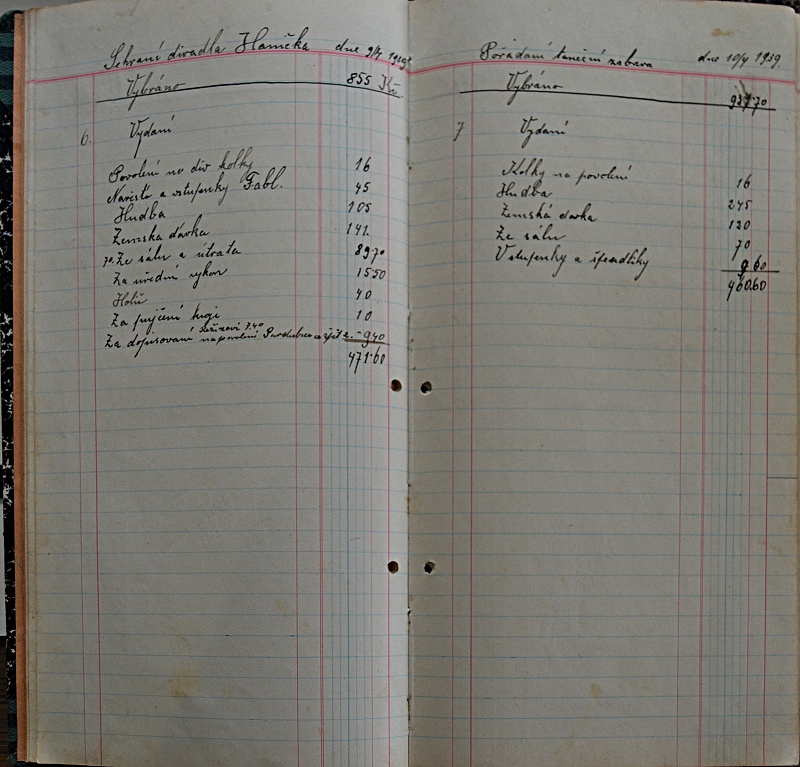 Sehraní divadla Hanička dne 9/4 1939
Vybráno 855 Kč
6. Vydání
Povolení na div kolky 16
a vstupenky Fabl. 45
Hudba 105
Zemska dávka 141.
70 Ze sálu a útrata 8970
Za uřední vykon 1550
Holič 40
Za pujčení knigi 10
Za dopisovaní na povolení Pardubice a zpět 2.- 940
7.40
471·60
Pořádaní taneční zabava dne 10/4 1939.
Vybráno
7 Vydání
Kolky na povolení 16
Hudba 245
Zemská davka 120
Ze sálu 70
Vstupenky a špendlíky 9 60
460.60